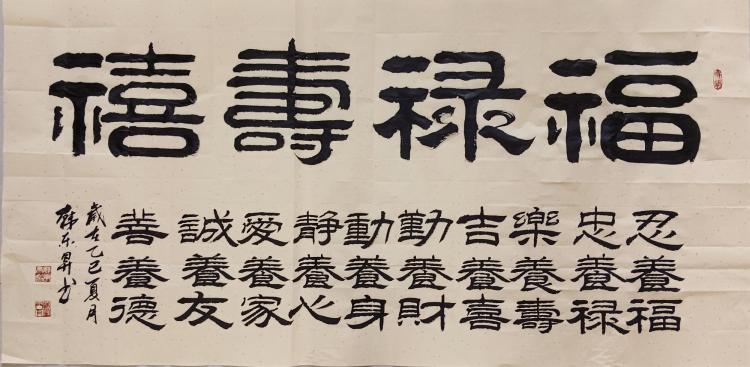 福祿壽禧
忍養福
忠養祿
樂養壽
吉養喜
勤養財
動養身
静養心
愛養家
誠養友
善養德
歲在乙巳夏月
韓東昇书